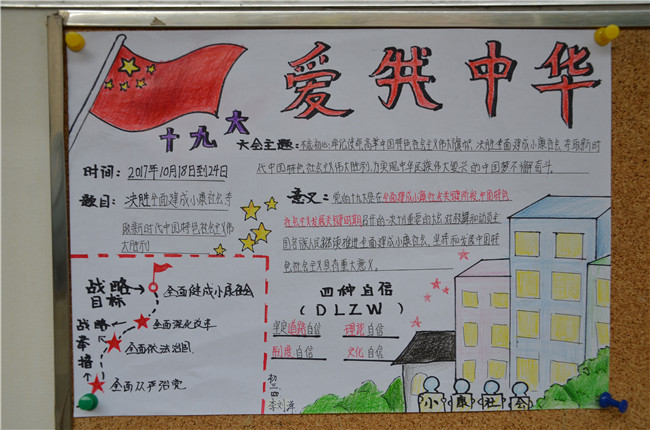 爱我中华
十九大
大会主题:不忘初心,牢记使命,高举中国特色社会主义伟大旗帜,决胜全面建成小康社会,夺取新时
代中国特色社会主义伟大胜利,为实现中华民族伟大复兴的中国梦不懈奋斗。
时间:2017年10月18日到24日
题目:决胜全面建成小康社会夺
取新时代中国特色社会主义伟
大胜利
意义:党的十九大是在全面建成小康社会关键阶段中国特色
社会主义发展关键时期召开的一次十分重要的大会,对鼓舞和动员全
国各族人民继续推进全面建成小康社会、坚持和发展中国特
色社会主义具有重大意义。
战略
目标
全面建成小康社会
战略
举措
全面深化改革
全面依法治国
全面从严治党
四种自信
(DLZW)
坚定道路自信 理论自信
制度自信 文化自信
初二四
李刘洋
小康社会